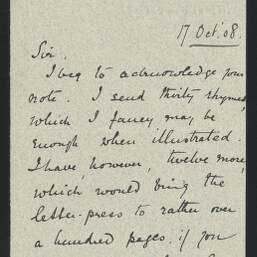 17 Oct '08.
Sir.
I beg to acknowledge your
note. I send thirty rhymes,
which I fancy may be
enough when illustrated.
I have, however, twelve more,
which would bring the
letter-press to rather over
a hundred pages, if you